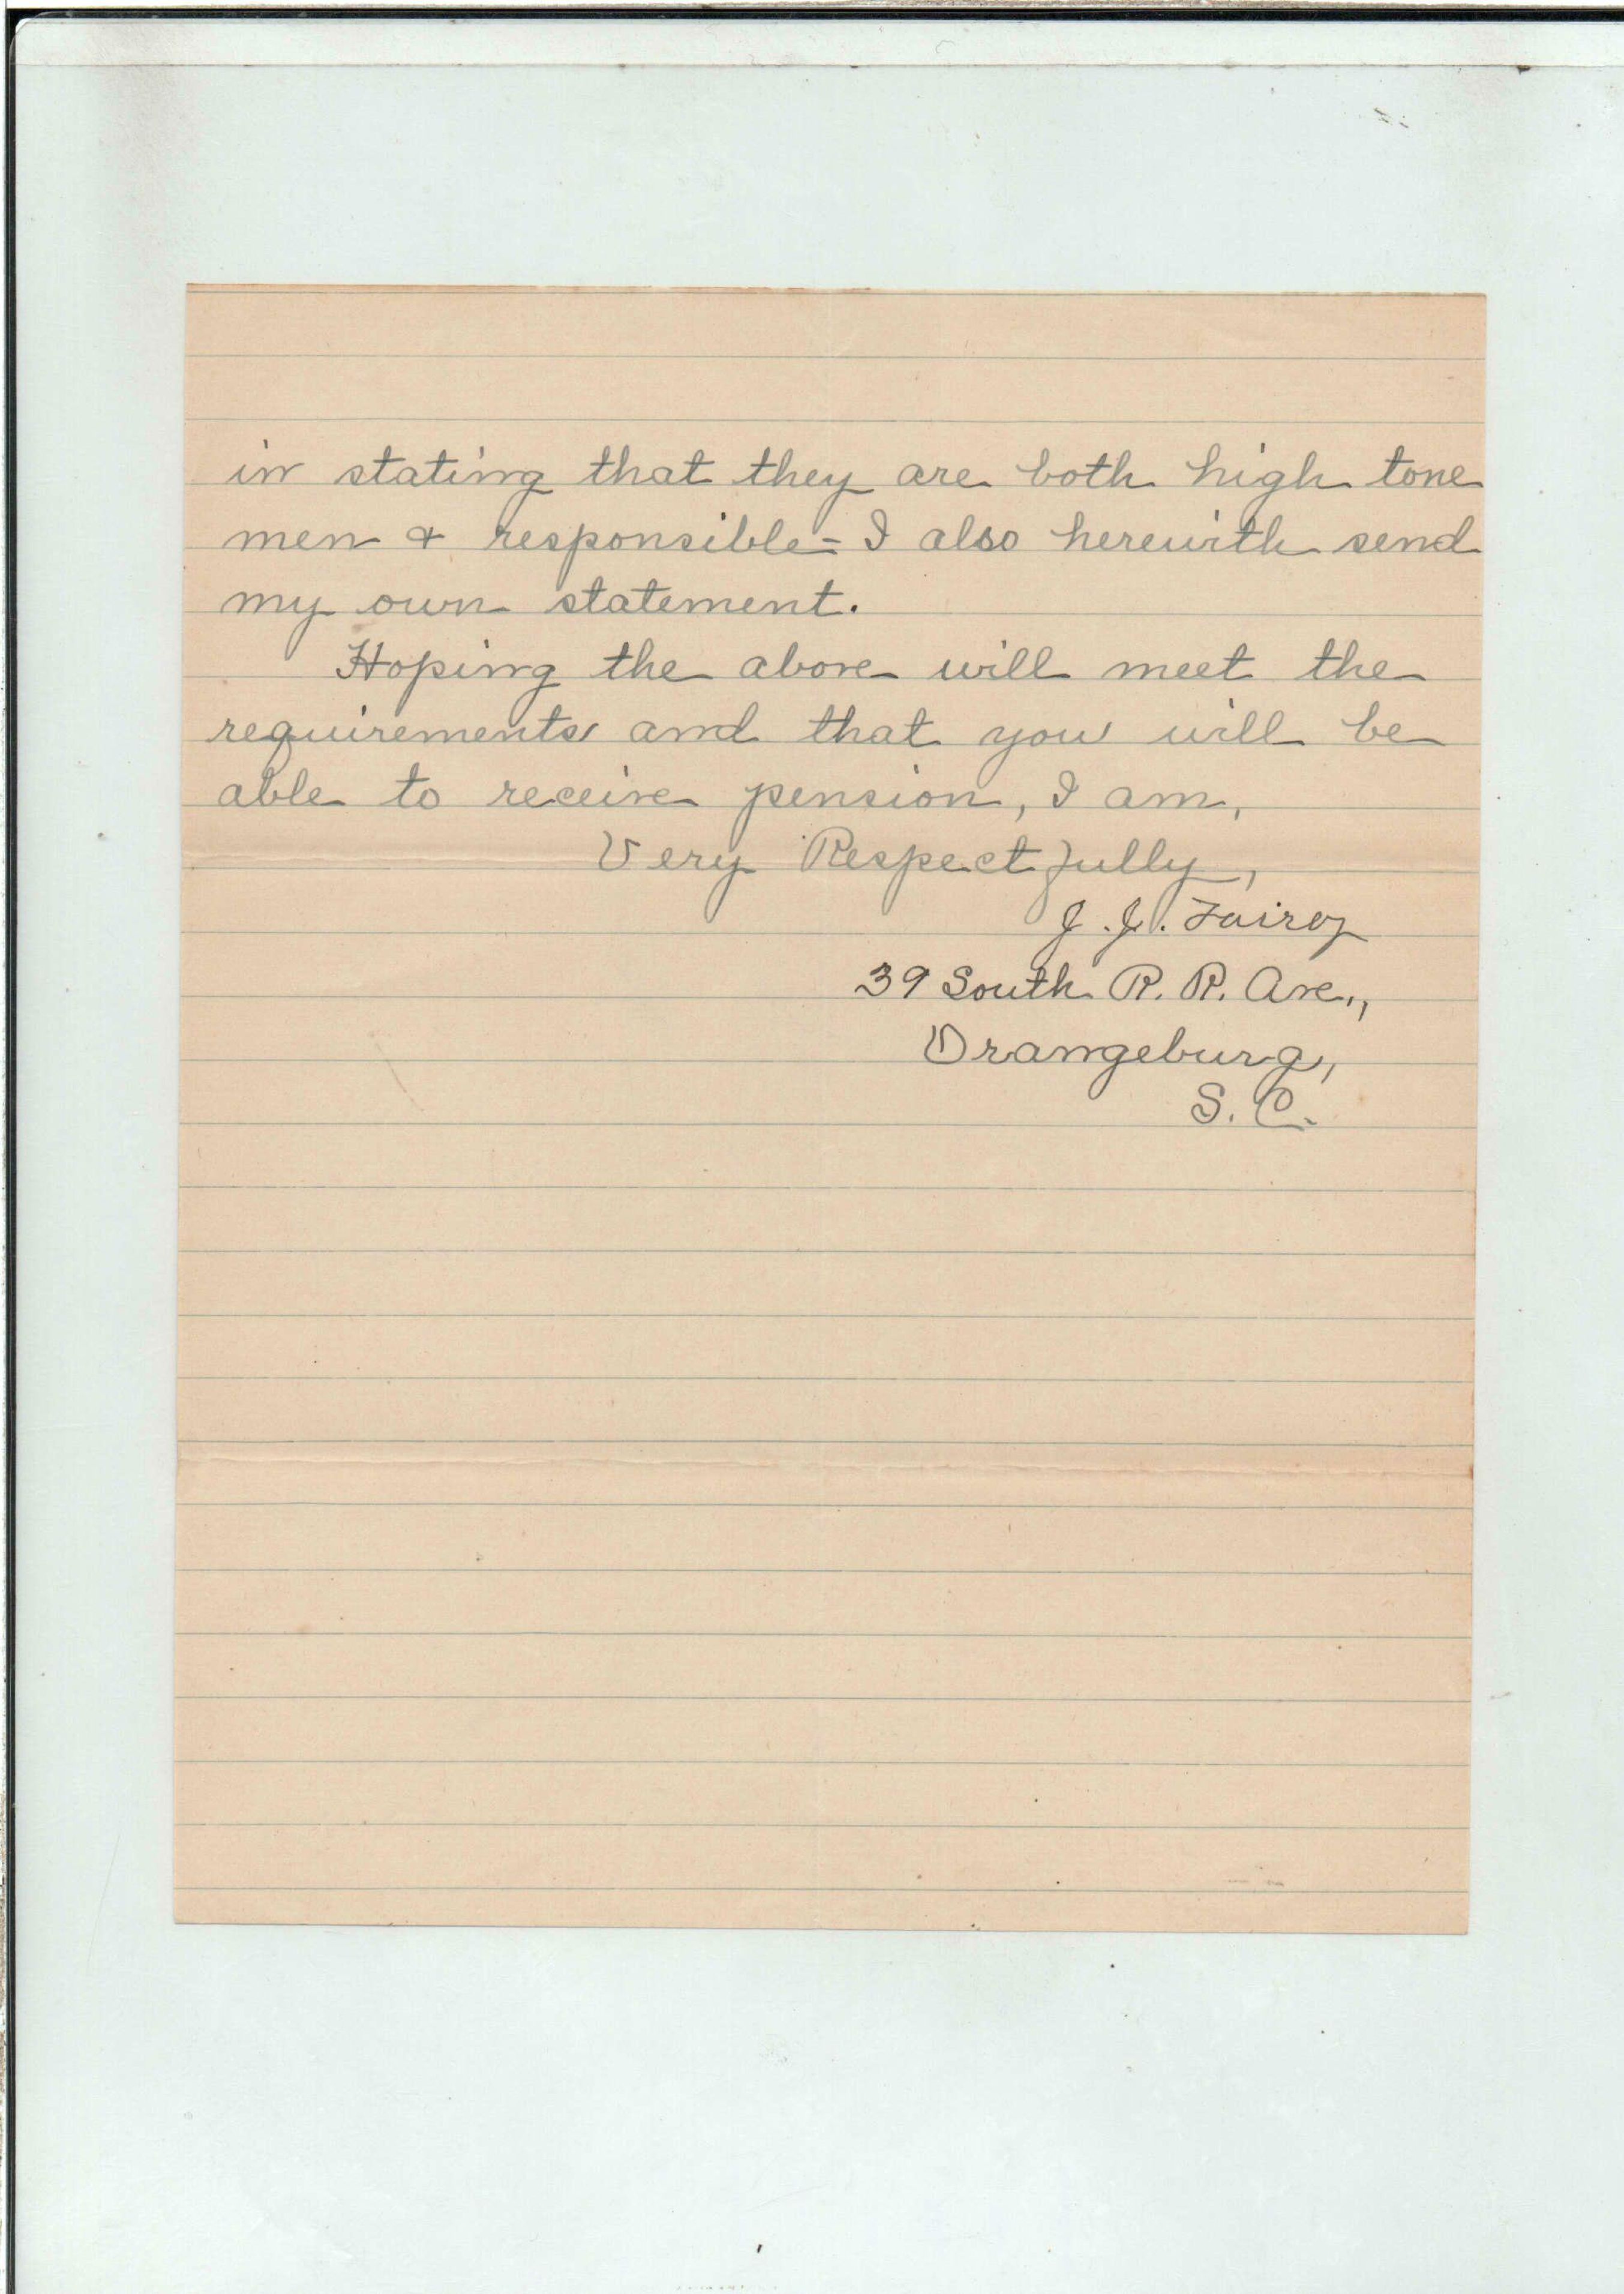 in stating that they are both high tone
men & responsible - I also herewith send
my own statement.
Hoping the above will meet the
requirements and that you will be
able to receive pension, I am,
Very Respectfully,
J. J. Fairey
39 South R. R. Ave.,
Orangeburg,
S. C.